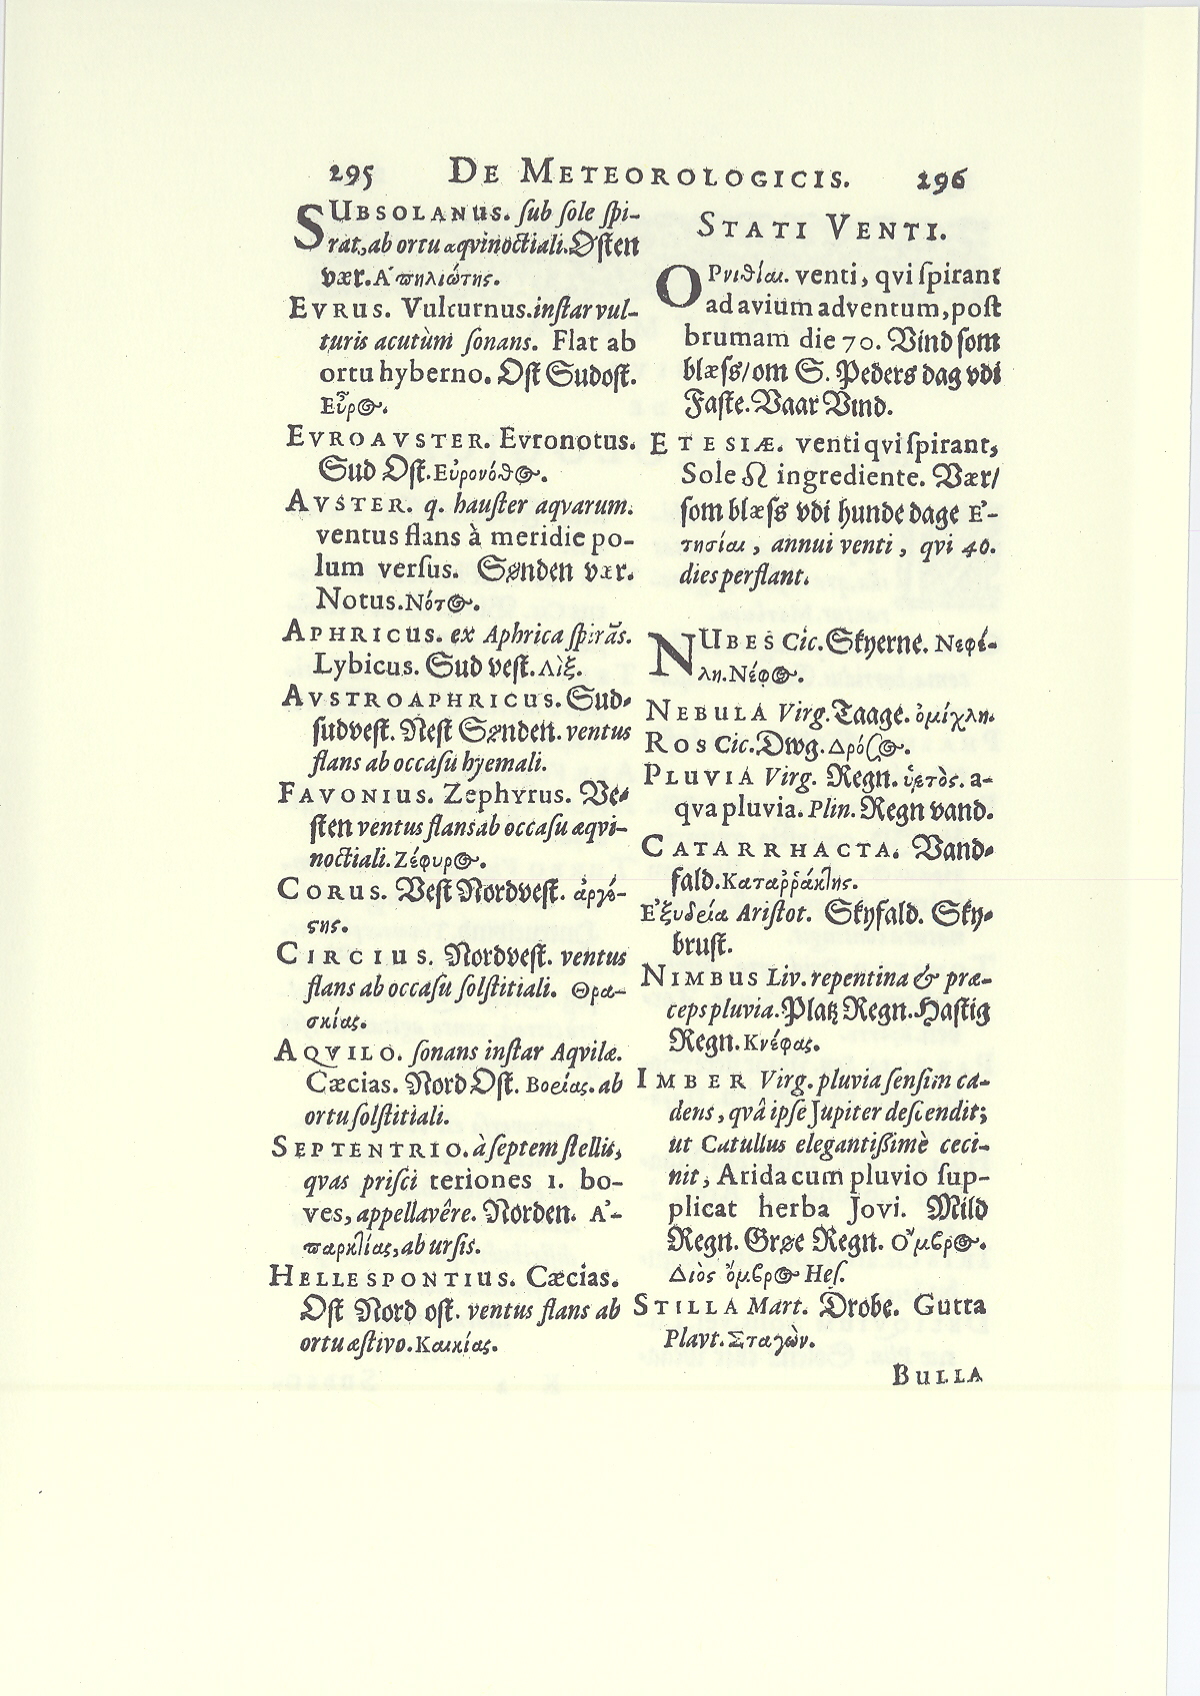 295 DE METEOROLOGICIS. 296
SUBSOLANUS. sub sole spi-
rat, ab ortu æqvinoctiali. Østen
vær. Α'πηλιώτης.
EVRUS. Vulturnus. instar vul-
turis acutùm sonans. Flat ab
ortu hyberno. Ost Sudost.
Εὖρος.
EVROAVSTER. Evronotus.
Sud Ost. Εὐρονόθος.
AVSTER. q. hauster aqvarum.
ventus flans à meridie po-
lum versus. Sønden vær.
Notus. Νότος.
APHRICUS. ex Aphrica spirãs.
Lybicus. Sud vest. Λὶξ.
AVSTROAPHRICUS. Sud-
sudvest. Nest Sønden. ventus
flans ab occasu hyemali.
FAVONIUS. Zephyrus. Ve-
sten ventus flans ab occasu æqvi-
noctiali. Ζέφυρος.
CORUS. Vest Nordvest. ἀργέ-
στης.
CIRCIUS. Nordvest. ventus
flans ab occasu solstitiali. Θρα-
σκίας.
AQVILO. sonans instar Aqvilæ.
Cæcias. Nord Ost. Βορείας. ab
ortu solstitiali.
SEPTENTRIO. à septem stellis,
qvas prisci teriones 1. bo-
ves, appellavêre. Norden. Α'-
παρκτίας, ab ursis.
HELLESPONTIUS. Cæcias.
Ost Nord ost. ventus flans ab
ortu æstivo. Καικίας.
STATI VENTI.
ΟΡνιθίαι. venti, qvi spirant
ad avium adventum, post
brumam die 70. Vind som
blæss/om S. Peders dag vdi
Faste. Vaar Vind.
ETESIÆ. venti qvi spirant,
Sole ♌ ingrediente. Vær/
som blæss vdi hunde dage Ε'-
τησίαι, annui venti, qvi 40.
dies perflant.
NUBES Cic. Skyerne. Νεφέ-
λη. Νέφος.
NEBULA Virg. Taage. ὁμίχλη.
ROS Cic. Dwg. Δρόσος.
PLUVIA Virg. Regn. ὑετὸς. a-
qva pluvia. Plin. Regn vand.
CATARRHACTA. Vand-
fald. Καταῤῥάκτης.
Ε'ξυδρία Aristot. Skyfald. Sky-
brust.
NIMBUS Liv. repentina & præ-
ceps pluvia. Platz Regn. Hastig
Regn. Κνέφας.
IMBER Virg. pluvia sensim ca-
dens, qvâ ipse Jupiter descendit;
ut Catullus elegantissimè ceci-
nit, Arida cum pluvio sup-
plicat herba Jovi. Mild
Regn. Grøe Regn. Ο῎μβρος.
Διὸς ὄμβρος Hes.
STILLA Mart. Drobe. Gutta
Plavt. Σταγὼν.
BULLA